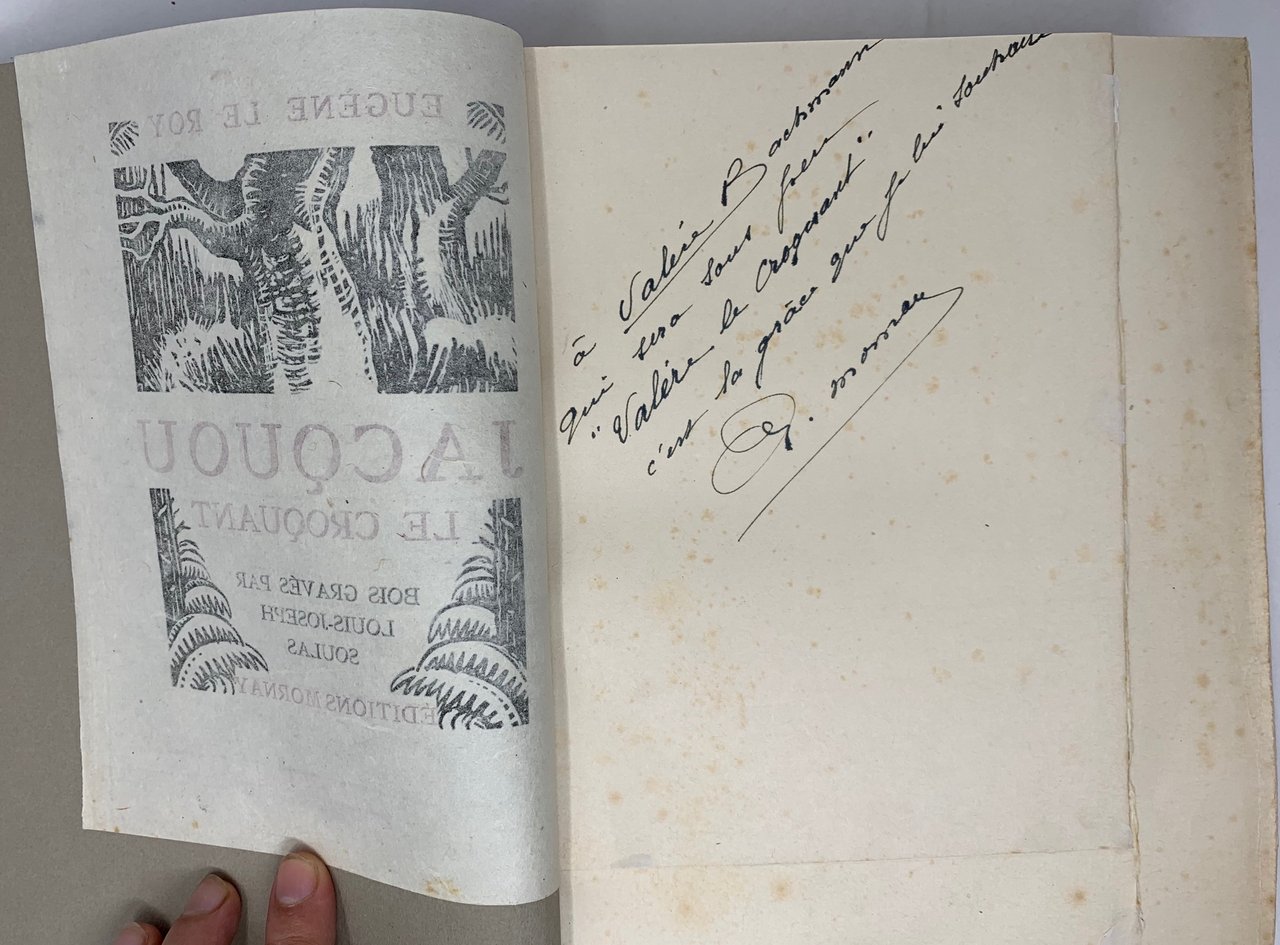 EUGÈNE LE ROY
JACQUOU
LE CROQUANT
BOIS GRAVÉS PAR
LOUIS-JOSEPH
SOULAS
ÉDITIONS MORNAY
à Valère Bachmann
qui sera sous peu
"Valère le Croquant"
c'est la grâce que je lui souhaite